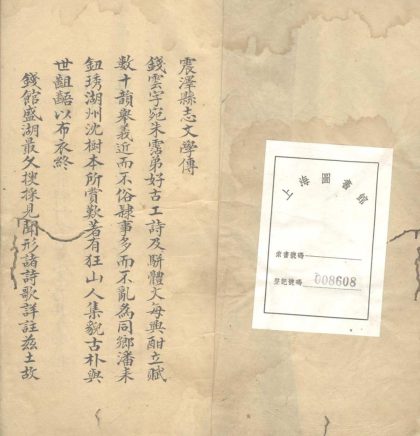 上海圖書館
索書號碼
登記號碼 008608
震澤縣志文學傳
錢雲字宛朱霑弟好古工詩及駢體文每興酣立賦
數十韻舉義近而不俗隸事多而不亂為同鄉潘耒
鈕琇湖州沈樹本所賞歎著有狂山人集貌古朴與
世齟齬以布衣終
錢館盛湖最久搜採見聞形諸詩歌詳註茲土故